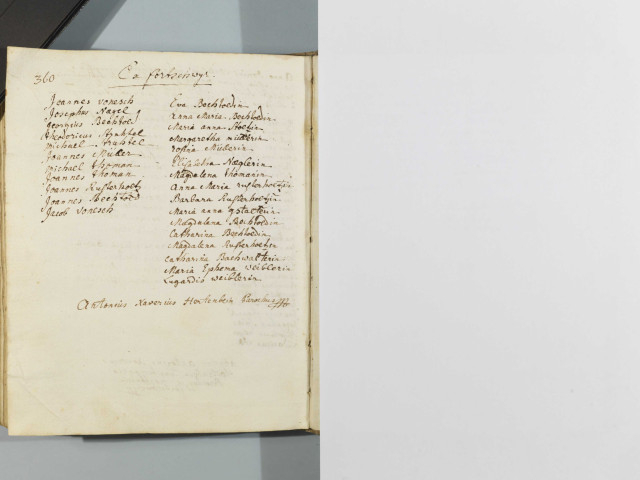 360
Joannes vonesch
Josephus Nagel
georgius Bechtol
theodericus
michael
Joannes Müller
michael thoman
Joannes thoman
Joannes Rusterholtz
Joannes Bechtold
Jacob vonesch
Eva Bechtoldin
Anna Maria Bechtoldin
Maria anna
Margaretha müllerin
rosina Müllerin
Elisabetha Næglerin
Magdalena thomanin
Anna Maria rusterholtzin
Barbara Rusterholtzin
Maria anna
Magdalena Bechtoldin
Catharina Bechtoldin
Magdalena Rusterholtzin
catharina Bachwalterin
Maria Ephema weiblerin
Lugardis weiblerin
Antonius Xaverius